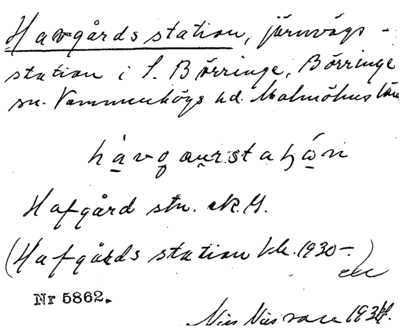 Havgårds station, järnvägs-
station i S. Börringe, Börringe
sn. Vemmenhögs hd. Malmöhus län
Hafgård stn. ek.
(Hafgårds station 1930-)
Nr 5862.
Nils 1934.